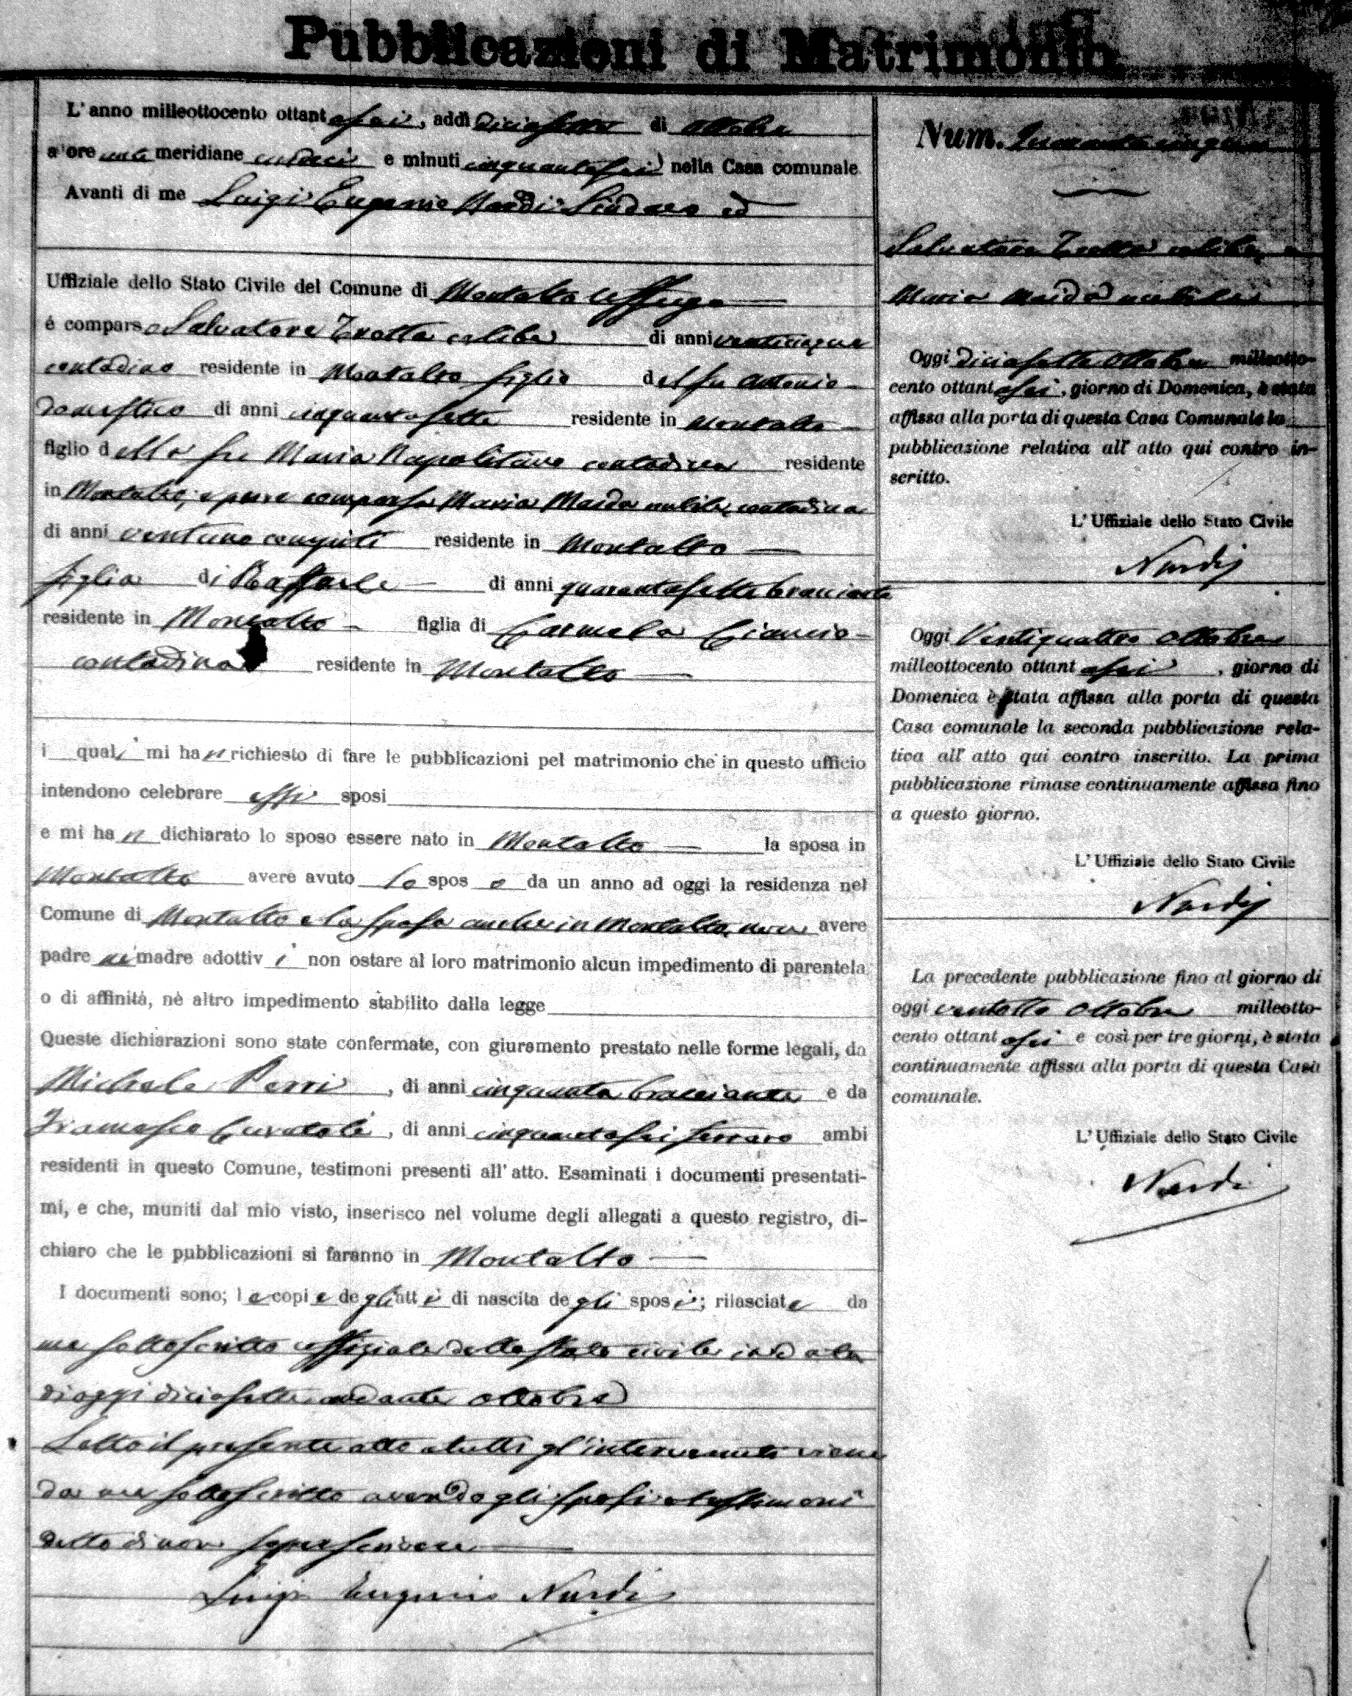 Pubblicazioni di Matrimonio
L'anno milleottocento ottantasei, addì diciasette di Ottobre
a ore ante meridiane undici e minuti cinquantasei nella Casa comunale
Avanti di me Luigi Eugenio Nardi Sindaco ed
Uffiziale dello Stato Civile del Comune di Montalto Uffugo
è comparso Salvatore Trotta celibe di anni venticinque
contadino residente in Montalto figlio del fu Antonio
domestico di anni cinquantasette residente in Montalto
figlio della fu Maria Napolitano contadina residente
in Montalto, e pure comparsa Maria Maida nubile, contadina
di anni ventuno compiuti residente in Montalto
figlia di Raffaele di anni quarantasette bracciante
residente in Montalto figlia di Carmela Ciancio
contadina residente in Montalto
i quali mi han richiesto di fare le pubblicazioni pel matrimonio che in questo ufficio
intendono celebrare essi sposi
e mi han dichiarato lo sposo essere nato in Montalto la sposa in
Montalto avere avuto lo sposo da un anno ad oggi la residenza nel
Comune di Montalto e la sposa anche in Montalto, non avere
padre nè madre adottivi non ostare al loro matrimonio alcun impedimento di parentela
o di affinità, nè altro impedimento stabilito dalla legge
Queste dichiarazioni sono state confermate, con giuramento prestato nelle forme legali, da
Michele Perri, di anni cinquanta bracciante e da
Francesco Curatolo, di anni cinquantasei ferraro ambi
residenti in questo Comune, testimoni presenti all'atto. Esaminati i documenti presentati-
mi, e che, muniti dal mio visto, inserisco nel volume degli allegati a questo registro, di-
chiaro che le pubblicazioni si faranno in Montalto
I documenti sono; le copie degli atti di nascita degli sposi; rilasciate da
me sottoscritto uffiziale dello stato civile in data
di oggi diciasette andante ottobre
Letto il presente atto a tutti gl'intervenuti viene
da me sottoscritto avendo gli sposi e testimoni
detto di non saper scrivere
Luigi Eugenio Nardi
Num. Quarantacinque
Salvatore Trotta celibe, e
Maria Maida nubile
Oggi diciasette Ottobre milleotto-
cento ottantasei, giorno di Domenica, è stata
affissa alla porta di questa Casa Comunale la
pubblicazione relativa all'atto qui contro in-
scritto.
L'Uffiziale dello Stato Civile
Nardi
Oggi Ventiquattro Ottobre
milleottocento ottantasei, giorno di
Domenica è stata affissa alla porta di questa
Casa comunale la seconda pubblicazione rela-
tiva all'atto qui contro inscritto. La prima
pubblicazione rimase continuamente affissa fino
a questo giorno.
L'Uffiziale dello Stato Civile
Nardi
La precedente pubblicazione fino al giorno di
oggi ventotto Ottobre milleotto-
cento ottantasei e così per tre giorni, è stata
continuamente affissa alla porta di questa Casa
comunale.
L'Uffiziale dello Stato Civile
Nardi